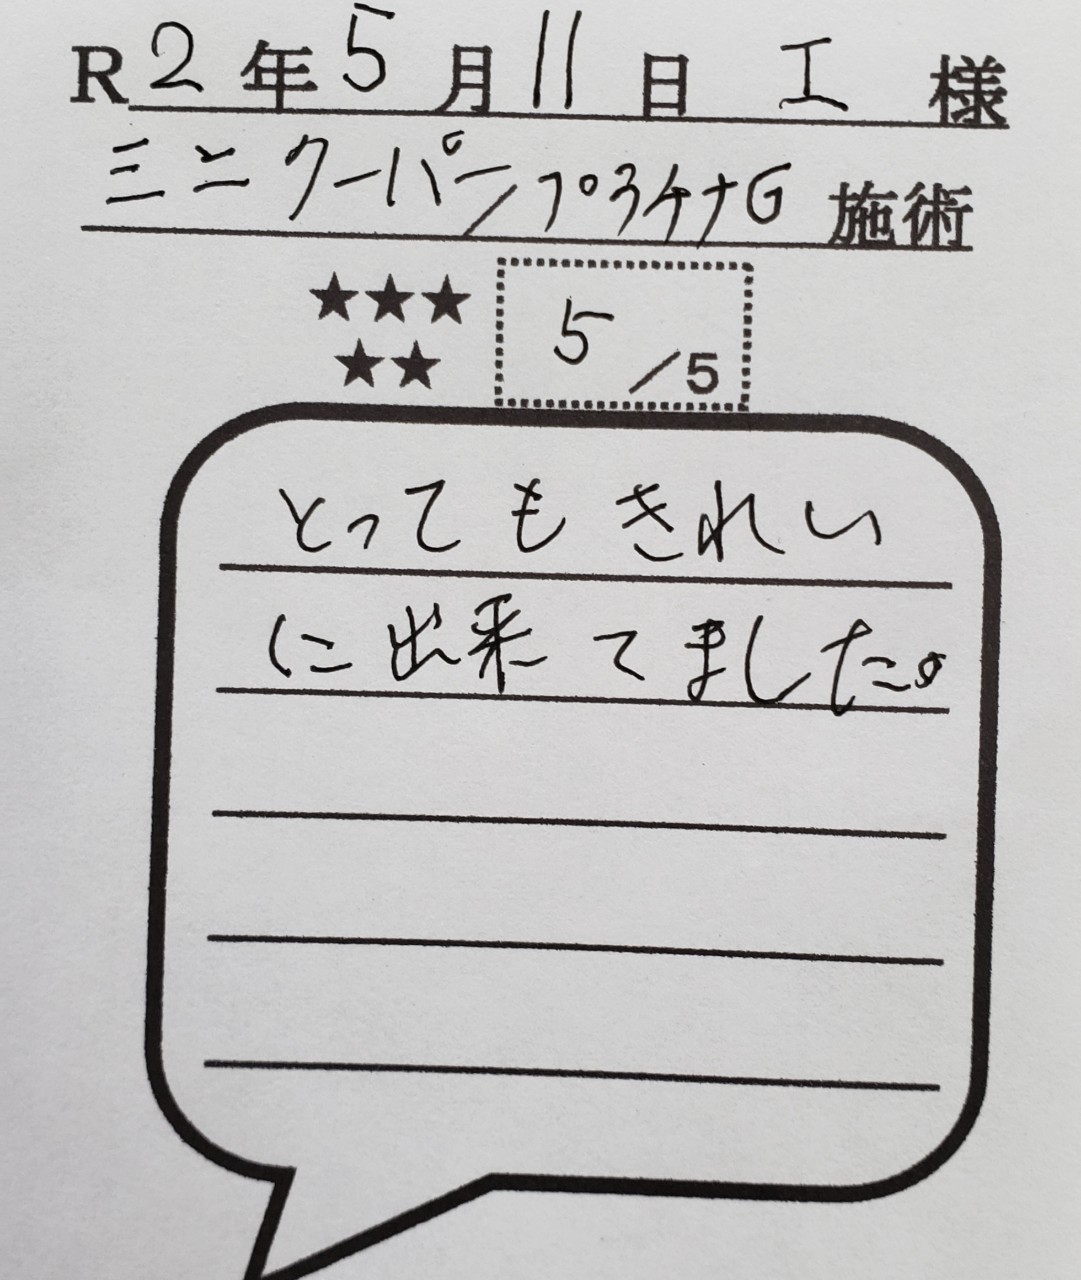 R2年5月11日 I 様
ミニクーパー/プラチナG 施術
★★★
★★
5/5
とってもきれい
に出来てました。